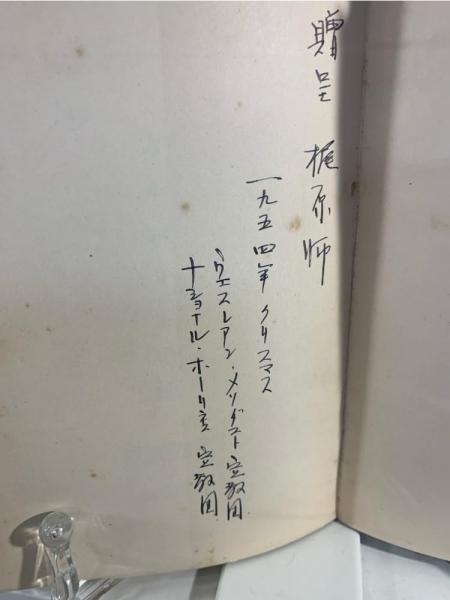 贈呈 梶原師
一九五四年 クリスマス
ウエスレアン・メソヂスト宣教団
ナショナル・ホーリネス 宣教団